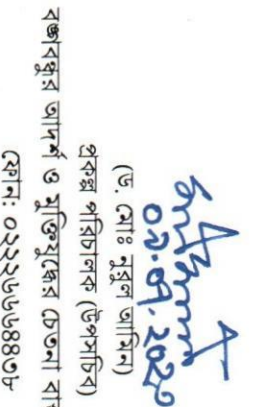 ০৯.০৭.২০২০
(ড. মোঃ নুরুল আমিন)
প্রকল্প পরিচালক (উপসচিব)
বঙ্গবন্ধুর আদর্শ ও মুক্তিযুদ্ধের চেতনা বা
ফোন: ০২২২৬৬৬৪৪৭৮